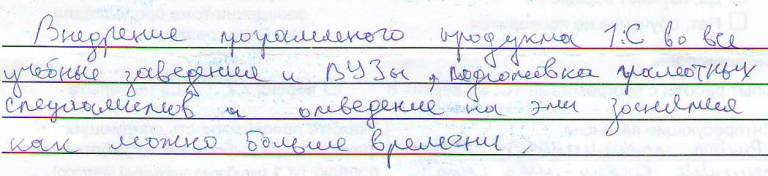 Внедрение програмного продукта 1:С во все
учебные заведения и ВУЗы, подготовка грамотных
специалистов и отведение на эти занятия
как можно больше времени.